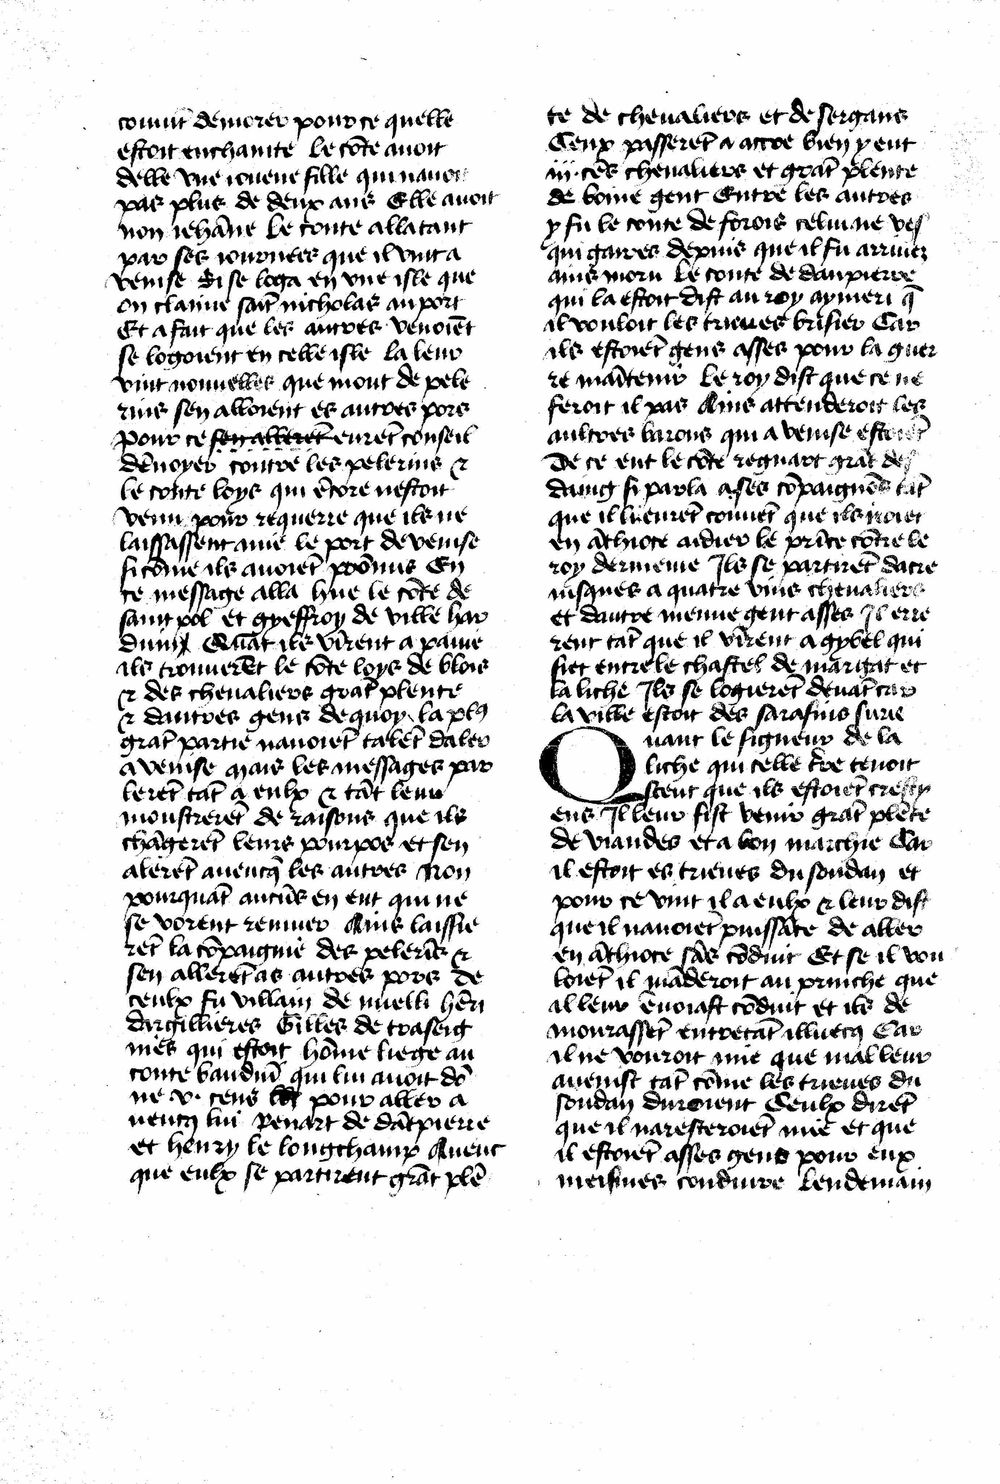 couuīt demorer pour ce quelle
estoit enchainte Le cōte auoit
delle vne iouene fille qui nauoit
pas plus de deux ans Elle auoit
non iehāne Le conte alla tant
par ses iournees que il vint a
venise Si se loga en vne isle que
on claime saīt nicholas au port
Et a fait que les autres venoiēt
se logoient en celle isle La leur
vint nouuelles que mont de pele
rins sen alloient es autres pors
Pour ce sen allerēt eurēt conseil
dēuoyer contre les pelerins &
le conte loys qui ēcore nestoit
venu pour requerre que ils ne
laissassent mie le port de venise
si cōme ils auoiēt prōmis En
ce message alla hue le cōte de
saint pol et gyeffroy de ville har
duin Quāt ils vīrent a pauie
ils trouuerēt le cōte loys de blois
& des cheualiers grāt plente
& dautres gens de quoy la plꝰ
grāt partie nauoiēt talēt daler
a venise Mais les messages par
lerēt tāt a eulx & tāt leur
monstrerēt de raisons que ils
chāgerēt leurs pourpos et sen
alerēt auecq̄ les autres Non
pourquāt aucūs en eut qui ne
se vorent remuer Ains laissie
rēt la cōpaignie des pelerīs &
sen allerēt as autres pors De
ceulx fu villain de nuelli hēri
dargillieres Gilles de traseig
nies qui estoit hōme liege au
conte bauduī qui lui auoit dō
ne v. cens pour aller a
uencq̄ lui Renart de dātpierre
et henry le longchamp Auenc
que eulx se partirent grāt plē
te de cheualiers et de sergans
Ceulx passerēt a accre bien y eut
iii. cēs cheualiers et grāt plente
de boine gent Entre les autres
y fu le conte de forois celui ne ves
qui gaires depuis que il fu arriuez
ains moru Le conte de danpierre
qui la estoit dist au roy aymeri q̄
il vouloit les trieues brisier Car
ils estoiēt gens asses pour la guer
re maītenir Le roy dist que ce ne
feroit il pas Ains attenderoit les
aultres barons qui a venise estoiēt
De ce eut le cōte regnart grāt des
daing si parla a ses cōpaignōs tāt
que il lieurēt conuēt que ils iroiēt
en āthioce aidier le prīce cōtre le
roy dermenie Ils se partirēt dacre
iusques a quatre vins cheualiers
et dautre menue gent asses Il erre
rent tāt que il vīrent a gybel qui
siet entre le chastel de margat et
la liche Ils se logierēt deuāt car
la ville estoit des sarasins surie
Quant le signeur de la
liche qui celle tr̄e tenoit
sceut que ils estoiēt cresty
ens Il leur fist venir grāt plēte
de viandes et a bon marchie Car
il estoit es trieues du soudan et
pour ce vint il a eulx & leur dist
que il nauoiēt puissāce de aller
en āthioce sās cōduit Et se il vou
loiēt il māderoit au prinche que
al leur ēuoiast cōduit et ils de
mourassēt entretāt illuecq̄ Car
il ne vouroit mie que mal leur
auenist tāt cōme les trieues du
soudan duroient Ceulx dirēt
que il naresteroiēt mie et que
il estoiēt asses gens pour eux
meismes conduire Lendemain